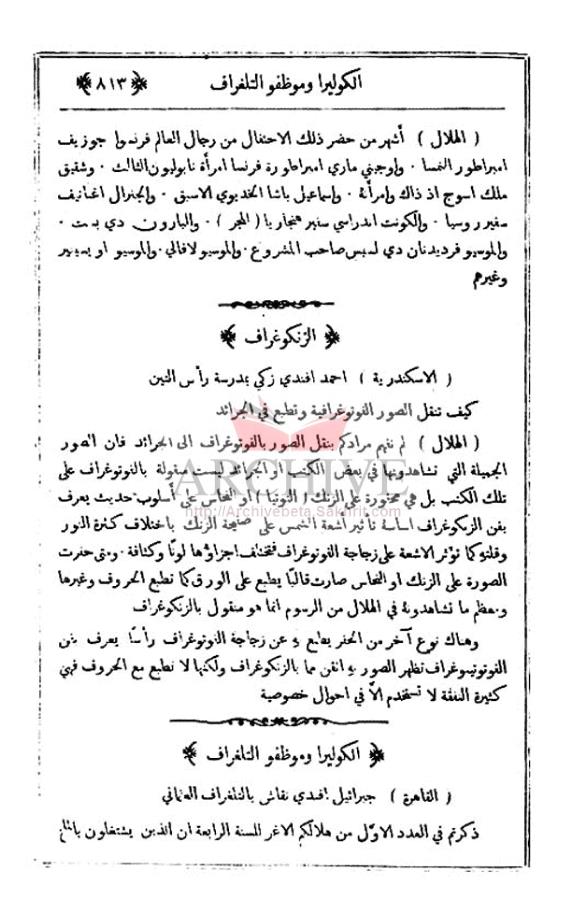 الكوليرا وموظفو التلغراف ﴿٨١٣﴾
( الهلال ) أشهر من حضر ذلك الاحتفال من رجال العالم فرنسوا جوزيف
امبراطور النمسا · واوجيني ماري امبراطورة فرنسا امرأة نابوليون الثالث · وشقيق
ملك اسوج اذ ذاك وامرأته · واسماعيل باشا الخديوي الاسبق · والجنرال اغناتيف
سفير روسيا · والكونت اندراسي سفير هنجاريا ( المجر ) · والبارون دي بست ·
والموسيو فرديناند دي لسبس صاحب المشروع · والموسيو لافالي · والموسيو
وغيرهم
﴿ الزنكوغراف ﴾
( الاسكندرية ) احمد افندي زكي بمدرسة رأس التين
كيف تنقل الصور الفوتوغرافية وتطبع في الجرائد
( الهلال ) لم نفهم مرادكم بنقل الصور بالفوتوغراف الى الجرائد فان الصور
الجميلة التي تشاهدونها في بعض الكتب او الجرائد ليست منقولة بالفوتوغراف على
تلك الكتب بل هي محفورة على الزنك ( التوتيا ) او النحاس على أسلوب حديث يعرف
بفن الزنكوغراف اساسه تأثير أشعة الشمس على صفيحة الزنك باختلاف كثرة النور
وقلته كما تؤثر الاشعة على زجاجة الفوتوغراف فتختلف اجزاؤها لونًا وكثافة · ومتى حفرت
الصورة على الزنك او النحاس صارت قالبًا يطبع على الورق كما تطبع الحروف وغيرها
ومعظم ما تشاهدونه في الهلال من الرسوم انما هو منقول بالزنكوغراف
وهناك نوع آخر من الحفر يطبع به عن زجاجة الفوتوغراف رأسًا يعرف بفن
الفوتوتيبوغراف تظهر الصور به اتقن مما بالزنكوغراف ولكنها لا تطبع مع الحروف فهي
كثيرة النفقة لا تستخدم الاّ في احوال خصوصية
﴿ الكوليرا وموظفو التلغراف ﴾
( القاهرة ) جبرائيل افندي نقاش بالتلغراف العثماني
ذكرتم في العدد الاوّل من هلالكم الاغر للسنة الرابعة ان الذين يشتغلون
ARCHIVE
http://Archivebeta.Sakhrit.com